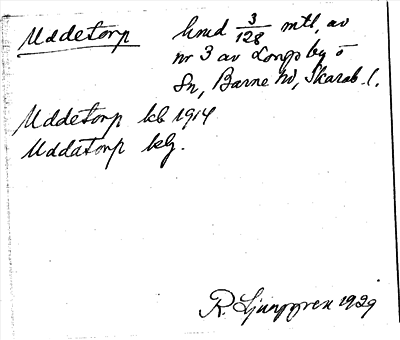 Uddetorp hmd 3/128 mtl, av
nr 3 av Longs by o
Sn, Barne hd, Skarab. l.
Uddetorp kb 1914
Uddatorp klg.
R. Ljunggren 1929